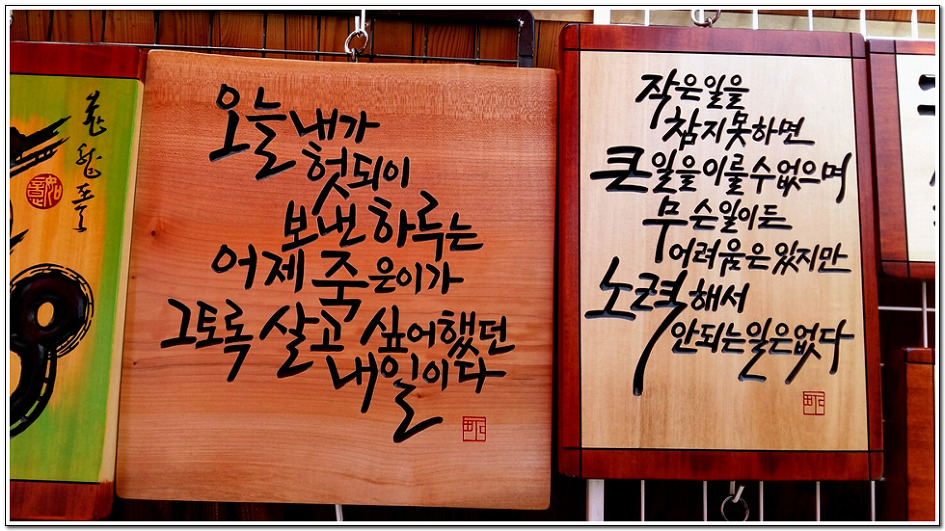 오늘 내가
헛되이
보낸 하루는
어제 죽은이가
그토록 살고 싶어했던
내일이다
작은일을
참지못하면
큰일을이룰수없으며
무슨일이든
어려움은있지만
노력해서
안되는일은없다